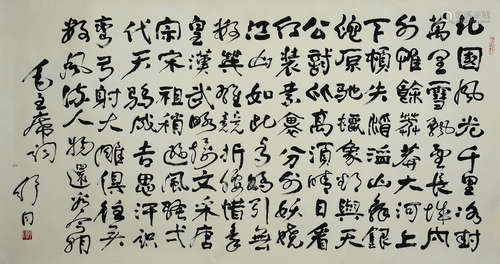 北國風光千里冰封
萬里雪飄望長城内
外惟餘莽莽大河上
下頓失滔滔山舞銀
蛇原馳蠟象欲與天
公試比高須晴日看
紅裝素裹分外妖嬈
江山如此多嬌引無
數英雄競折腰惜秦
皇漢武略輸文采唐
宗宋祖稍遜風騷弌
代天驕成吉思汗识
彎弓射大雕俱往矣
數風流人物還看今朝
毛主席詞 舒同